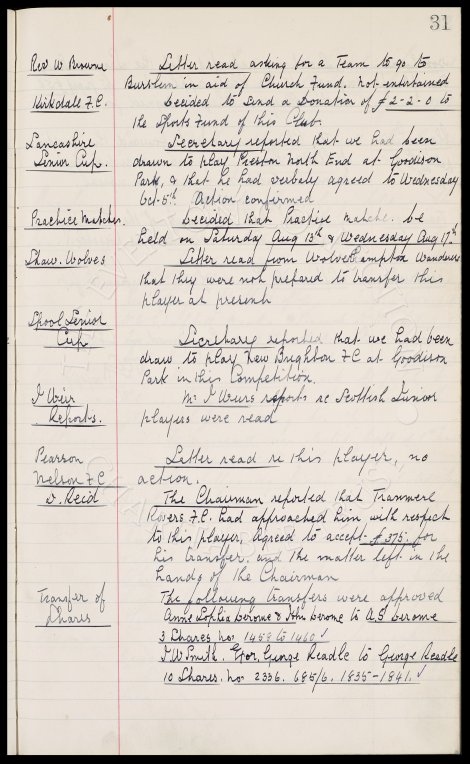 31
Rev W Browne Letter read asking for a Team to go to
Burslem in aid of Church Fund. Not entertained
Kirkdale F.C. Decided to send a Donation of £2-2-0 to
the Sports Fund of this Club.
Lancashire Secretary reported that we had been
Senior Cup. drawn to play Preston North End at Goodison
Park, & that he had verbely agreed to Wednesday
Oct 5th. Action confirmed
Practice Matches. Decided that Practise Matche. be
held on Saturday Aug 13th & Wednesday Aug 17th
Shaw. Wolves Letter read from Wolverhampton Wanderers
that they were not prepared to transfer this
player at present
Lpool Senior
Cup Secretary reported that we had been
draw to play New Brighton F.C at Goodison
Park in this Competition.
J Weir Mr J Weirs reports re Scottish Junior
Reports. players were read
Pearson Letter read re this player, no
Nelson F.C action.
D. Reid The Chairman reported that Tranmere
Rovers F.C. had approached him with respect
to this player, Agreed to accept £375. for
his transfer. and the matter left in the
hands of the Chairman
Transfer of The following transfers were approved
Shares Anne Sophia Gerome & John Gerome to A.S Gerome
3 Shares No 1458 to 1460
J.W Smith. George Readle to George Readle
10 Shares. No 2336. 685/6. 1835-1841.